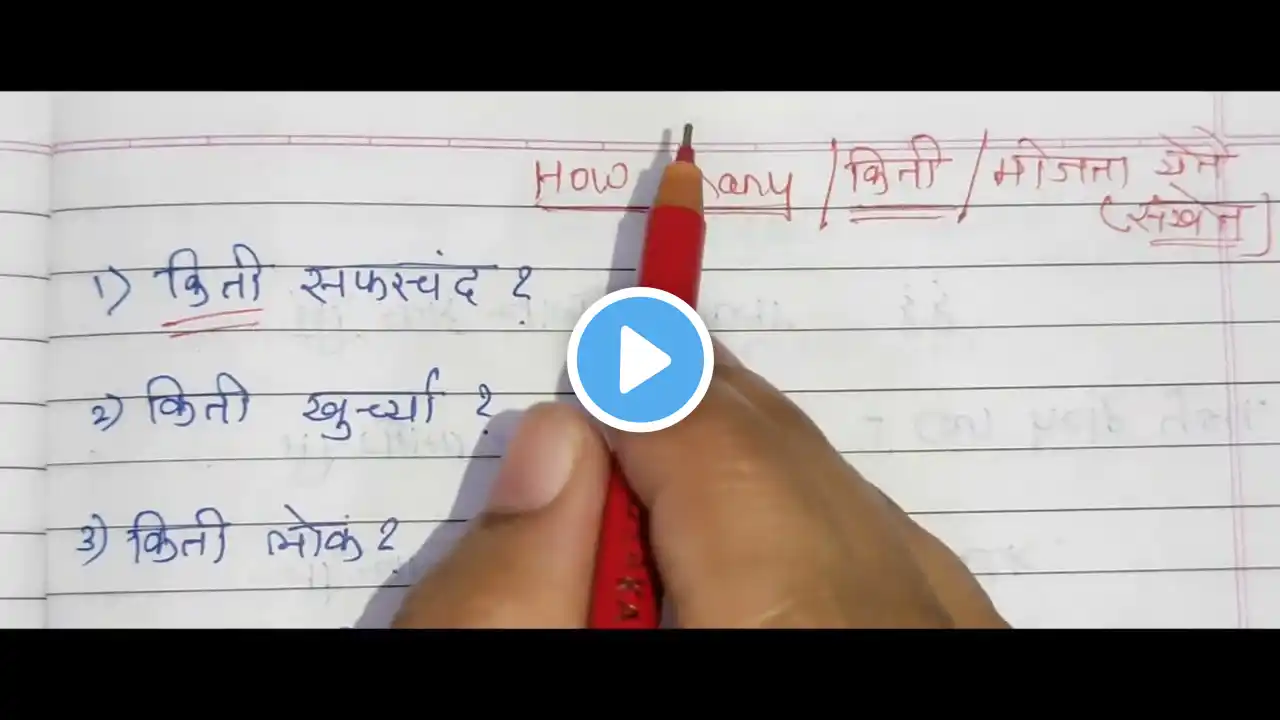 How many / किती / मोजता येते
(संख्येत)
१) किती सफरचंद ?
२) किती खुर्च्या ?
३) किती लोकं ?